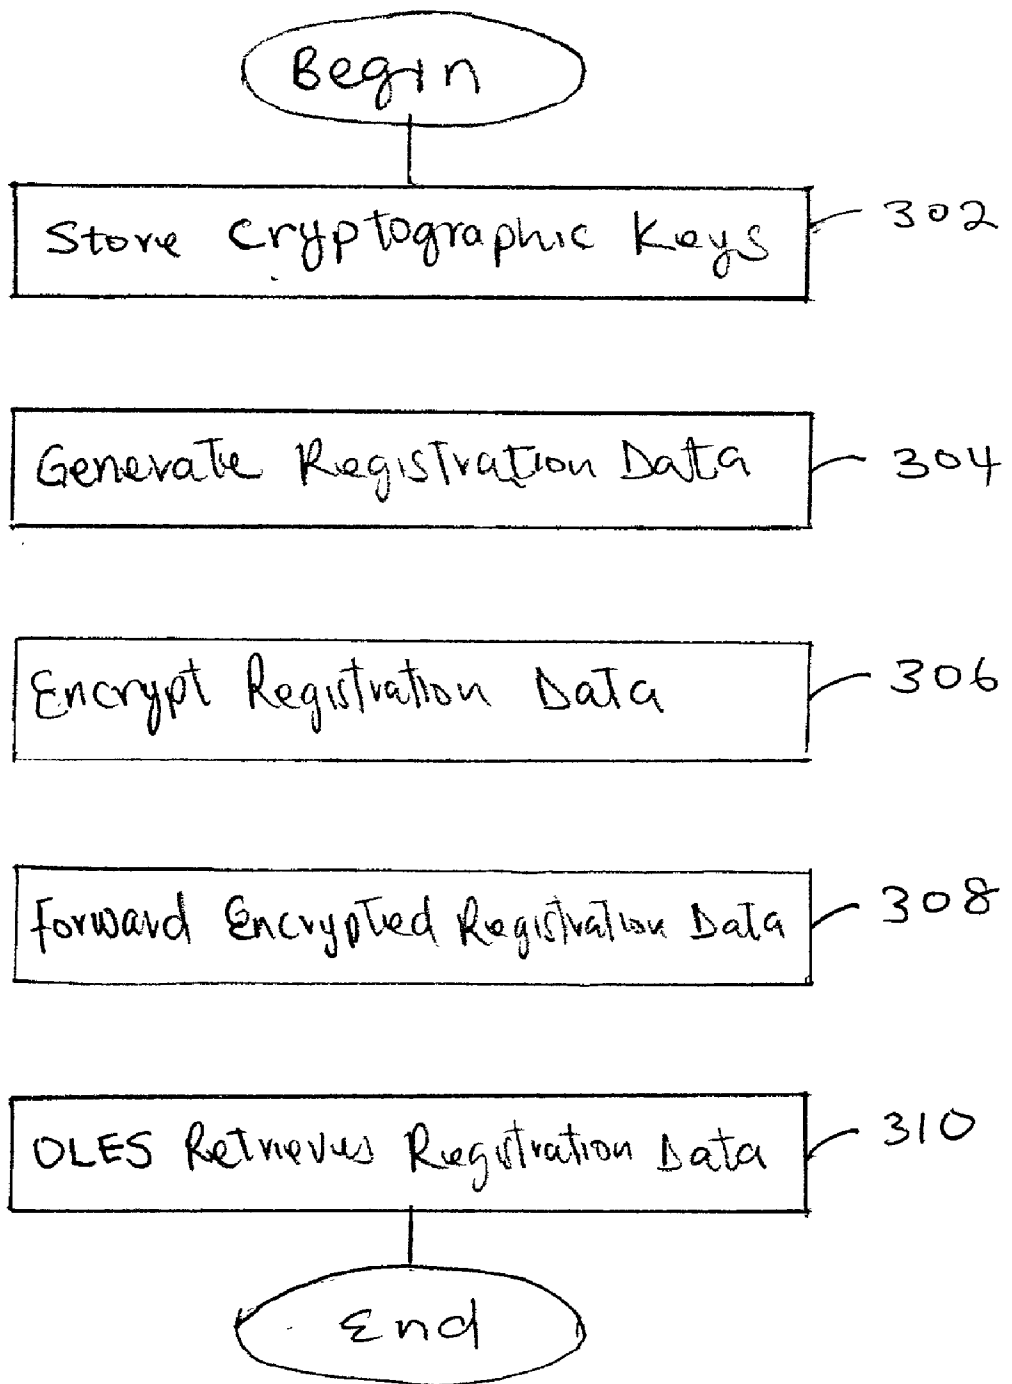 Begin
Store Cryptographic Keys 302
Generate Registration Data 304
Encrypt Registration Data 306
Forward Encrypted Registration Data 308
OLES Retrieves Registration Data 310
End